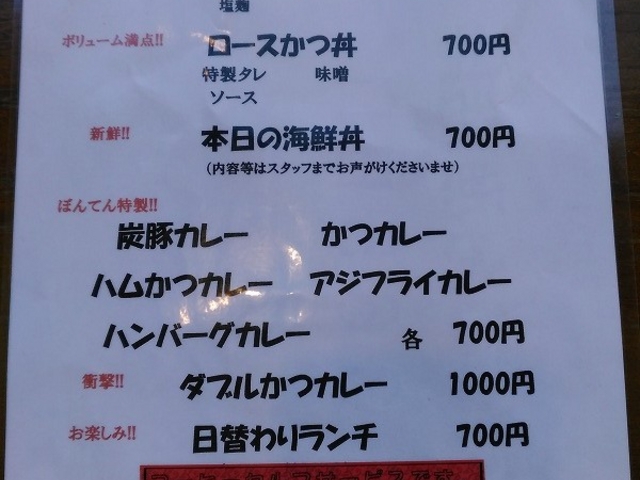 塩麹
ボリューム満点!! ロースかつ丼 700円
特製タレ 味噌
ソース
新鮮!! 本日の海鮮丼 700円
(内容等はスタッフまでお声がけくださいませ)
ぼんてん特製!!
炭豚カレー かつカレー
ハムかつカレー アジフライカレー
ハンバーグカレー 各 700円
衝撃!! ダブルかつカレー 1000円
お楽しみ!! 日替わりランチ 700円